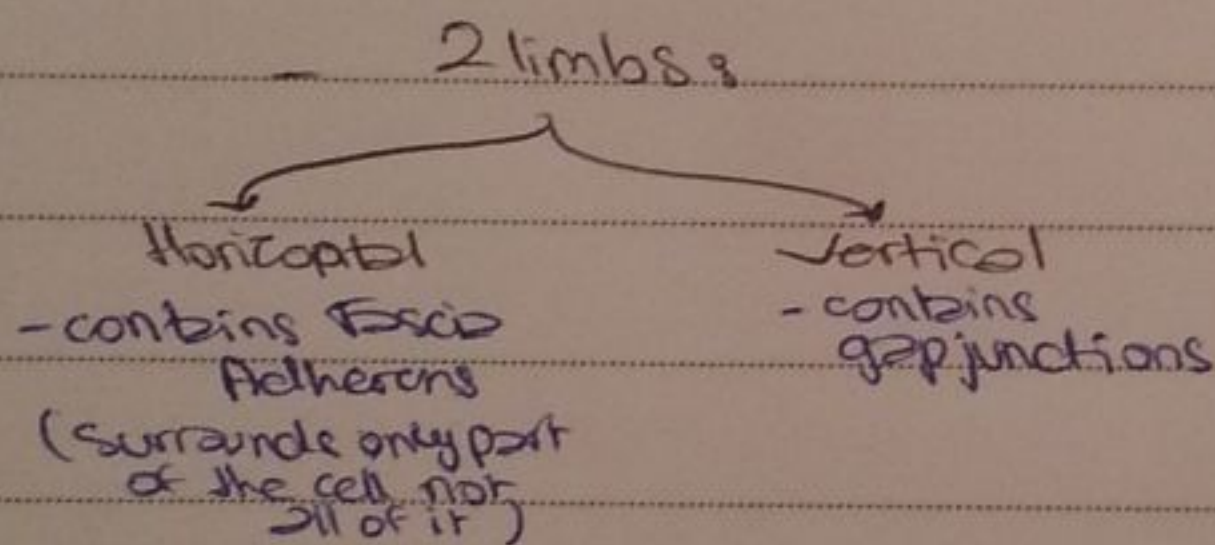 - 2 limbs :
Horizontal
Vertical
- contains Fascia
Adherens
(surrounds only part
of the cell not
all of it)
- contains
gap junctions